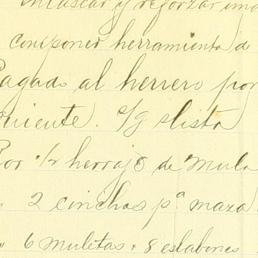 enlascar y reforzar una
componer herramienta d
Pagado al herrero por
quiente. s/g slista
Por 1/2 herraje de Mula
" 2 cinchos pª maza
" 6 muletas " 8 eslabones